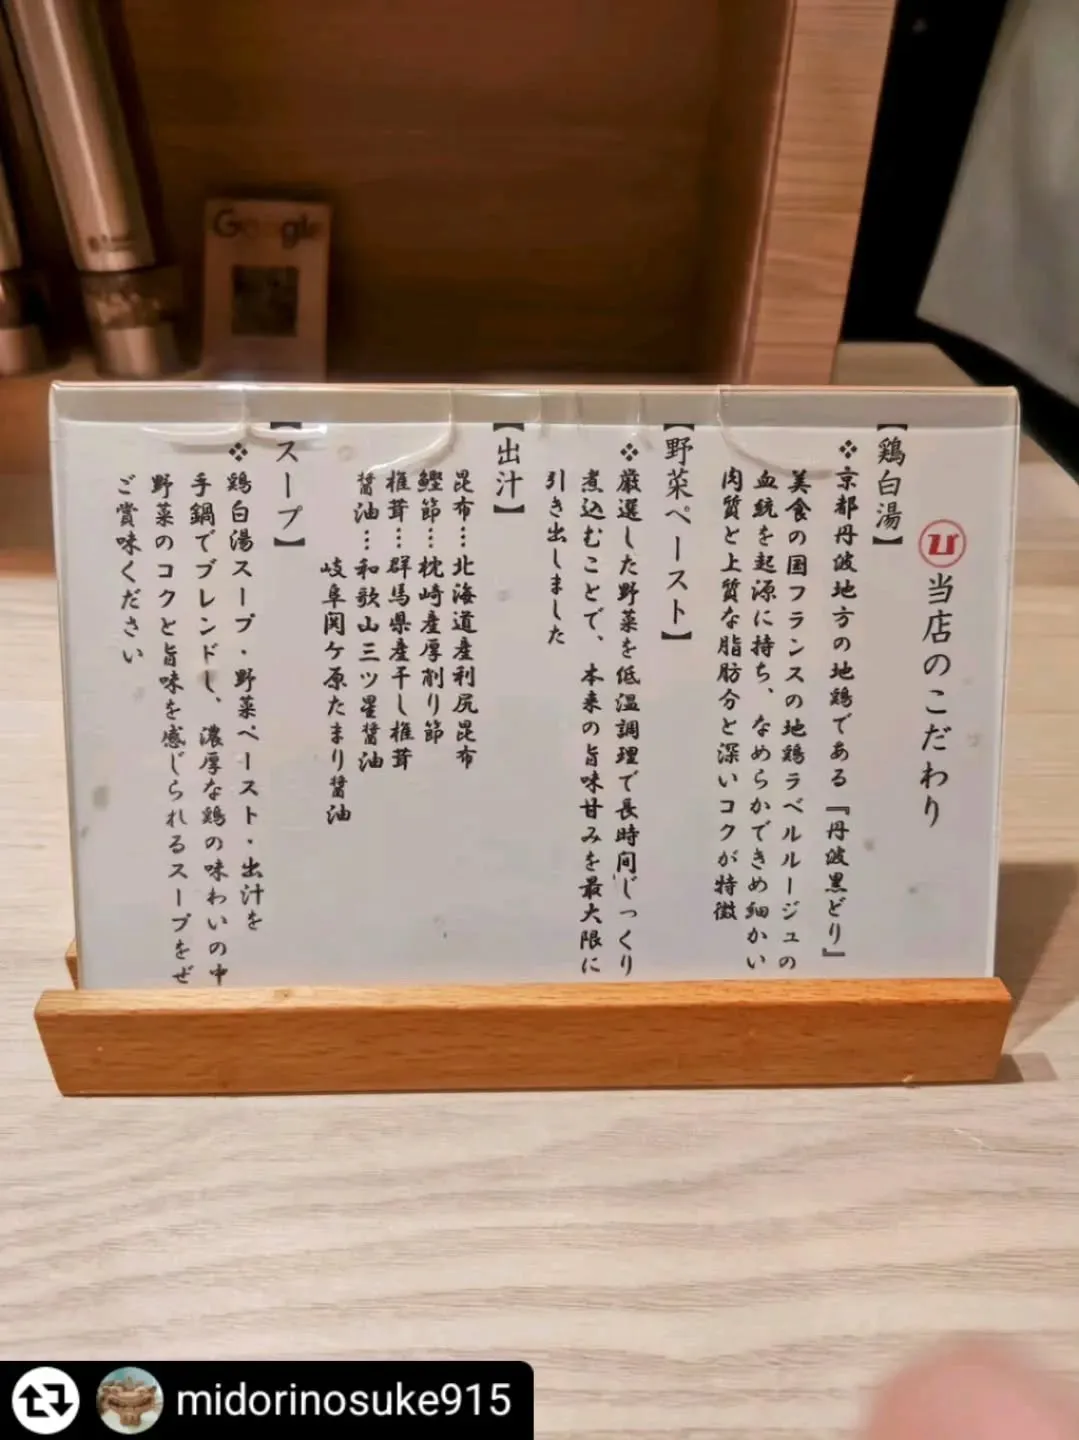 当店のこだわり
【鶏白湯】
❖京都丹波地方の地鶏である『丹波黒どり』
美食の国フランスの地鶏ラベルルージュの
血統を起源に持ち、なめらかできめ細かい
肉質と上質な脂肪分と深いコクが特徴
【野菜ペースト】
❖厳選した野菜を低温調理で長時間じっくり
煮込むことで、本来の旨味甘みを最大限に
引き出しました
【出汁】
昆布…北海道産利尻昆布
鰹節…枕崎産厚削り節
椎茸…群馬県産干し椎茸
醤油…和歌山三ツ星醤油
岐阜関ケ原たまり醤油
【スープ】
❖鶏白湯スープ・野菜ペースト・出汁を
手鍋でブレンドし、濃厚な鶏の味わいの中
野菜のコクと旨味を感じられるスープをぜ
ご賞味ください
Google
midorinosuke915